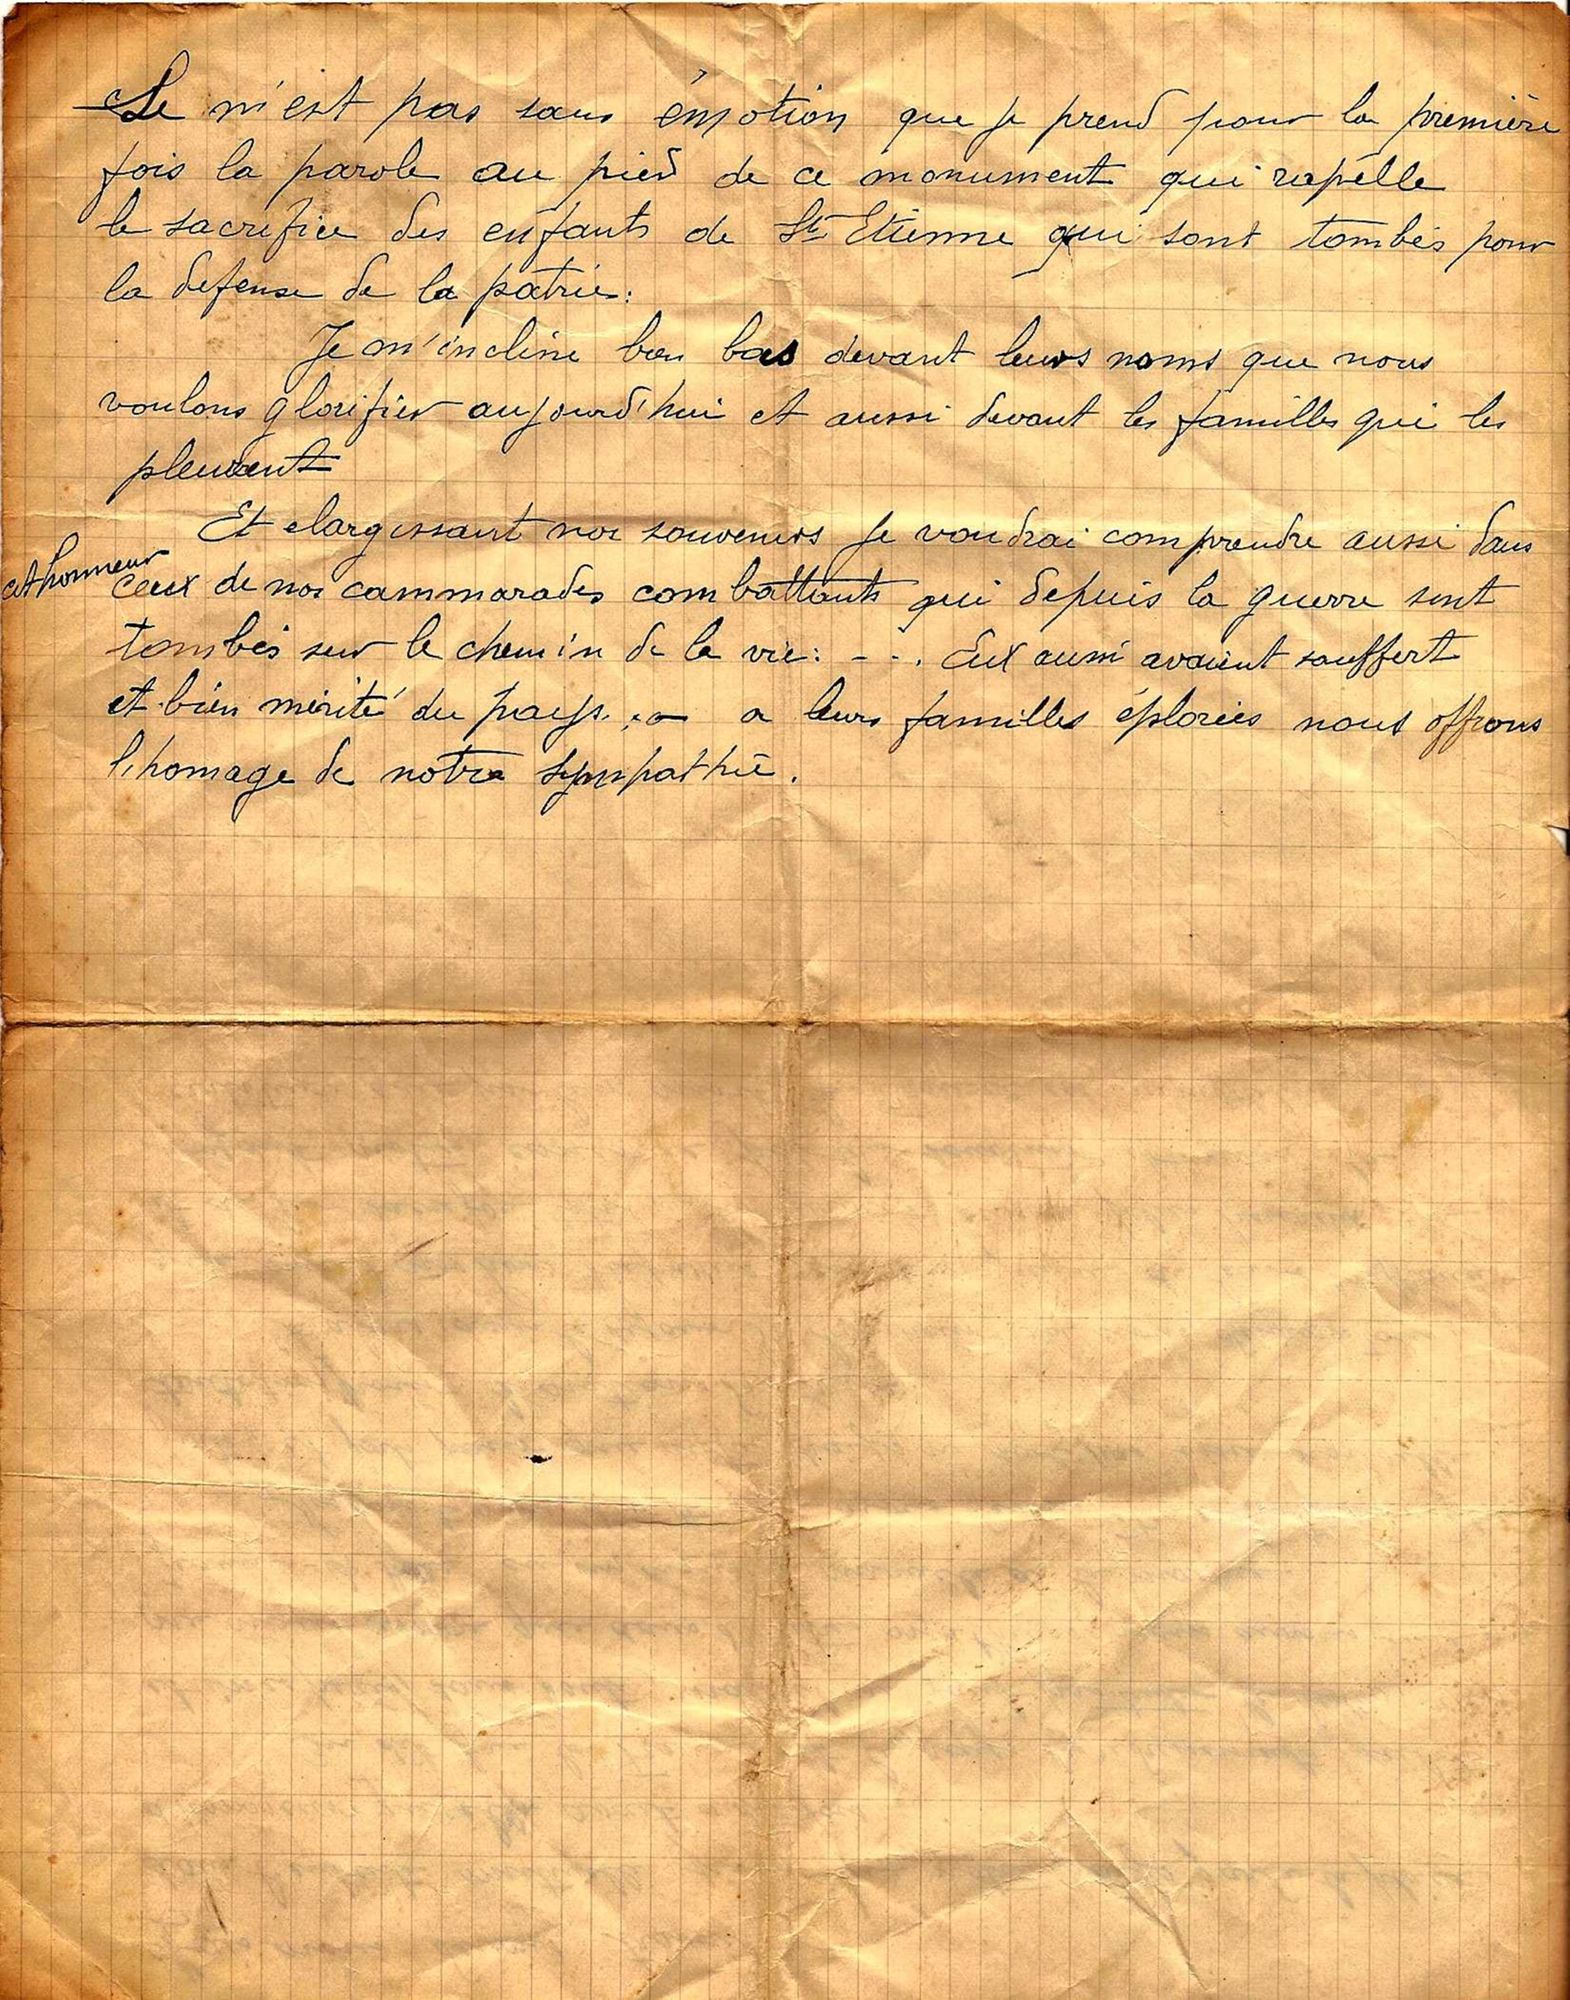 Ce n'est pas sans émotion que je prend pour la première
fois la parole au pied de ce monument qui rapelle
le sacrifice des enfants de St Etienne qui sont tombés pour
la defense de la patrie.
Je m'incline bien bas devant leurs noms que nous
voulons glorifier aujourd'hui et aussi devant les familles qui les
pleurent
Et elargissant nos souvenirs je voudrai comprendre aussi dans
cet honneur
ceux de nos cammarades combattants qui depuis la guerre sont
tombés sur le chemin de la vie: - - . Eux aussi avaient souffert
et bien mérité du pays. a leurs familles éplorées nous offrons
l'homage de notre sympathie.